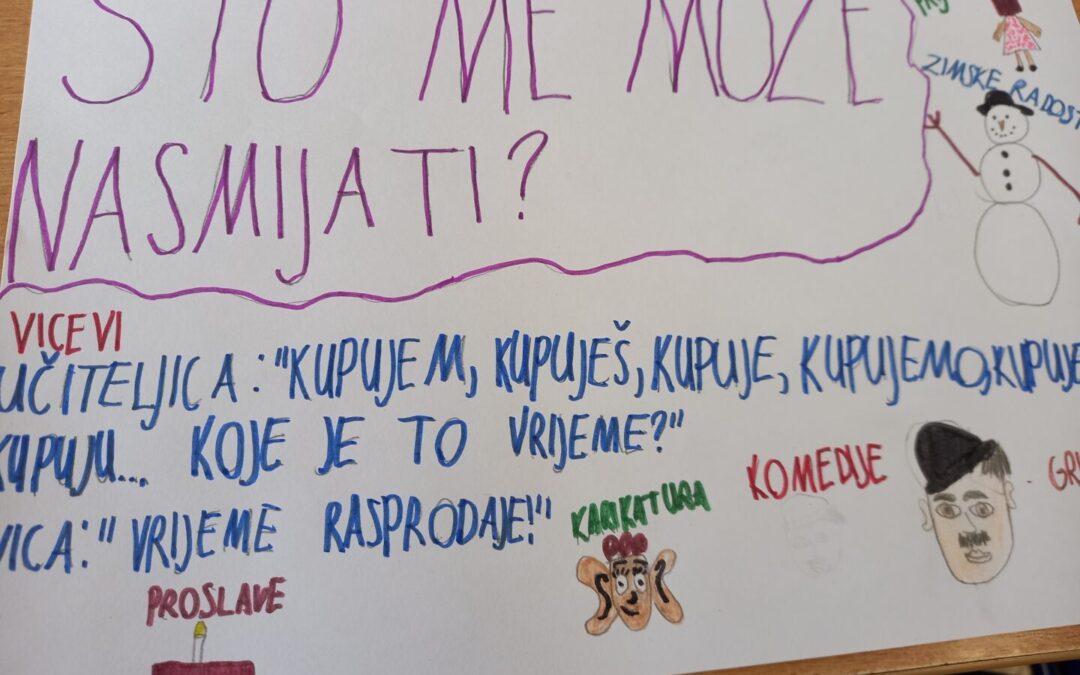 ŠTO ME MOŽE
NASMIJATI?
ZIMSKE RADOST
VICEVI
UČITELJICA: "KUPUJEM, KUPUJEŠ, KUPUJE, KUPUJEMO, KUPUJE
KUPUJU... KOJE JE TO VRIJEME?"
VICA: "VRIJEME RASPRODAJE!"
KARIKATURA
KOMEDIJE
PROSLAVE